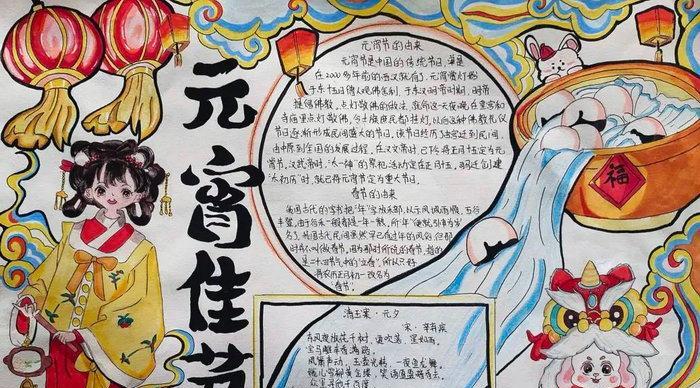 元宵佳节
元宵节的由来
元宵节是中国的传统节日,早
在2000多年前的西汉就有了,元宵赏灯始
于东十五日僧人观佛舍利,于东汉明帝时期,明帝
提倡佛教,点灯敬佛的做法,就命这一天夜晚在皇宫和
寺庙里点灯敬佛,令士族庶民都挂灯,以后这种佛教礼仪
节日逐渐形成民间盛大的节日,该节日经历了由宫廷到民间,
由中原到全国的发展过程,在汉文帝时,已下令将正月十五定为元
宵节,汉武帝时,"太一神"的祭祀活动定在正月十五,司马迁创建
"太初历"时,就已将元宵节定为重大节日。
春节的由来
我国古代的字书把"年"字放禾部,以示风调雨顺,五谷
丰登,由于谷禾一般都是一年一熟,所"年"便被引申为岁
名,我国古代民间虽然早已有过年的风俗,但那
时不叫做春节,因为那时所说的春节,指的
是二十四节气中的"立春",所以只好
将农历正月初一改名为
"春节"。
青玉案·元夕
宋·辛弃疾
东风夜放花千树,更吹落,星如雨。
宝马雕车香满路。
凤箫声动,玉壶光转,一夜鱼龙舞。
蛾儿雪柳黄金缕,笑语盈盈暗香去。
众里寻他千百度
福